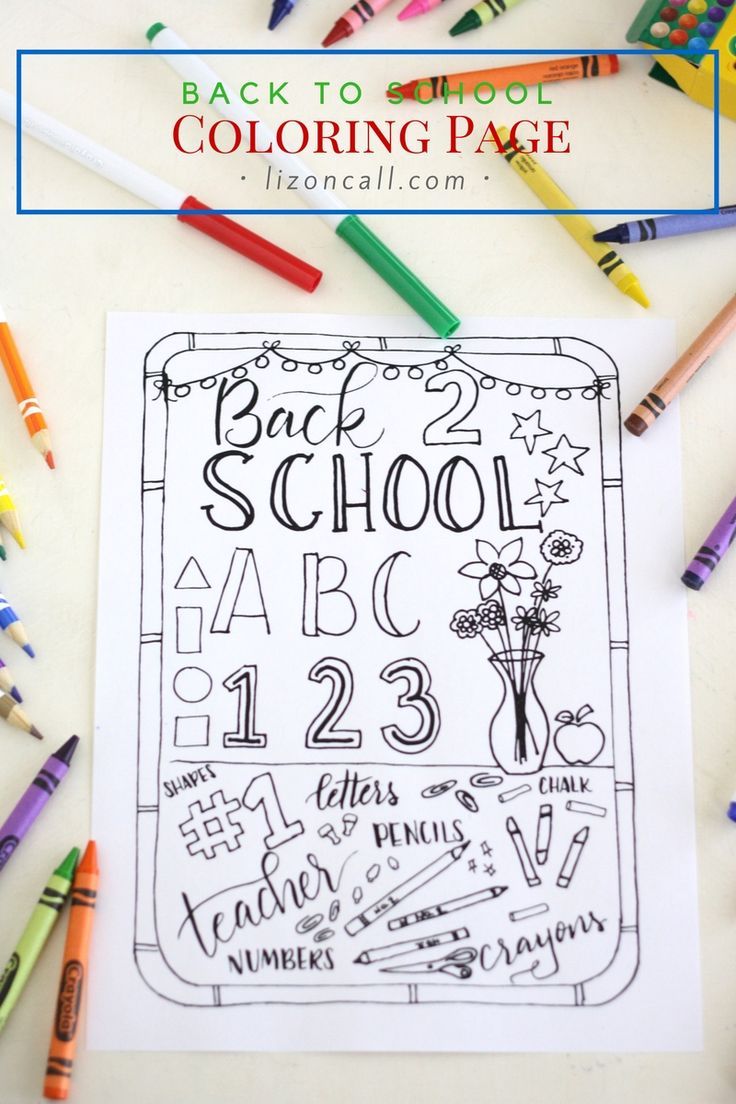 BACK TO SCHOOL
COLORING PAGE
• lizoncall.com •
red orange
Back 2
SCHOOL
A B C
1 2 3
SHAPES
#1
letters
CHALK
PENCILS
teacher
NUMBERS
crayons
Crayola
Crayola
Crayola